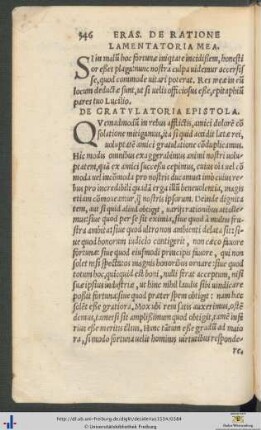 346 ERAS. DE RATIONE
LAMENTATORIA MEA.
SI in malũ hoc fortunæ iniquitate incidissem, honesti
or esset plaga: nunc nostra culpa uidemur accersis
se, quod commode uitari poterat. Res meæ in eũ
locum deductæ sunt, ut si uelis officiosus esse, epitaphiũ
pares tuo Lucilio.
DE GRATVLATORIA EPISTOLA.
QVemadmodũ in rebus afflictis, amici dolorẽ cõ
solatione mitigamus, ita si quid accidit lætæ rei,
uoluptatẽ amici gratulatione cõduplicamus.
Hic modis omnibus exaggerabimus animi nostri uolu
ptatem, quã ex amici successu cepimus, cuius uel cõ
moda uel incõmoda pro nostris ducamus
bus pro incredibili quadã erga illũ beneuolentia, magis
etiam cõmoueamur, q̃ nostris ipsorum. Deinde dignita
tem, aut si quid aliud obtigit, uarijs rationibus attolle
mus: siue quod per se sit eximia, siue quod à multis fru
stra ambita: siue quod ultro non ambienti delata sit: si
ue quod honorum iudicio contigerit, non cæco fauore
fortunæ: siue quod eiusmodi principis fauore, qui non
solet nisi spectatis magnis honoribus ornare: siue quod
totum hoc, quicquid est boni, nulli ferat acceptum, nisi
suæ ipsius industriæ, ut hinc nihil laudis sibi uindicare
possit fortuna: siue quod præter spem obtigit: nam hæc
solẽt esse gratiora. Mox ubi rem satis auxerimus, oste
demus, tametsi sit amplissimum quod obtigit, tamẽ in fe
rius esse meritis illius. Hunc tãtum esse gradũ ad maio
ra, si modo fortuna uelit hominis uirtutibus responde-
re,
http://dl.ub.uni-freiburg.de/diglit/
© Universitätsbibliothek Freiburg